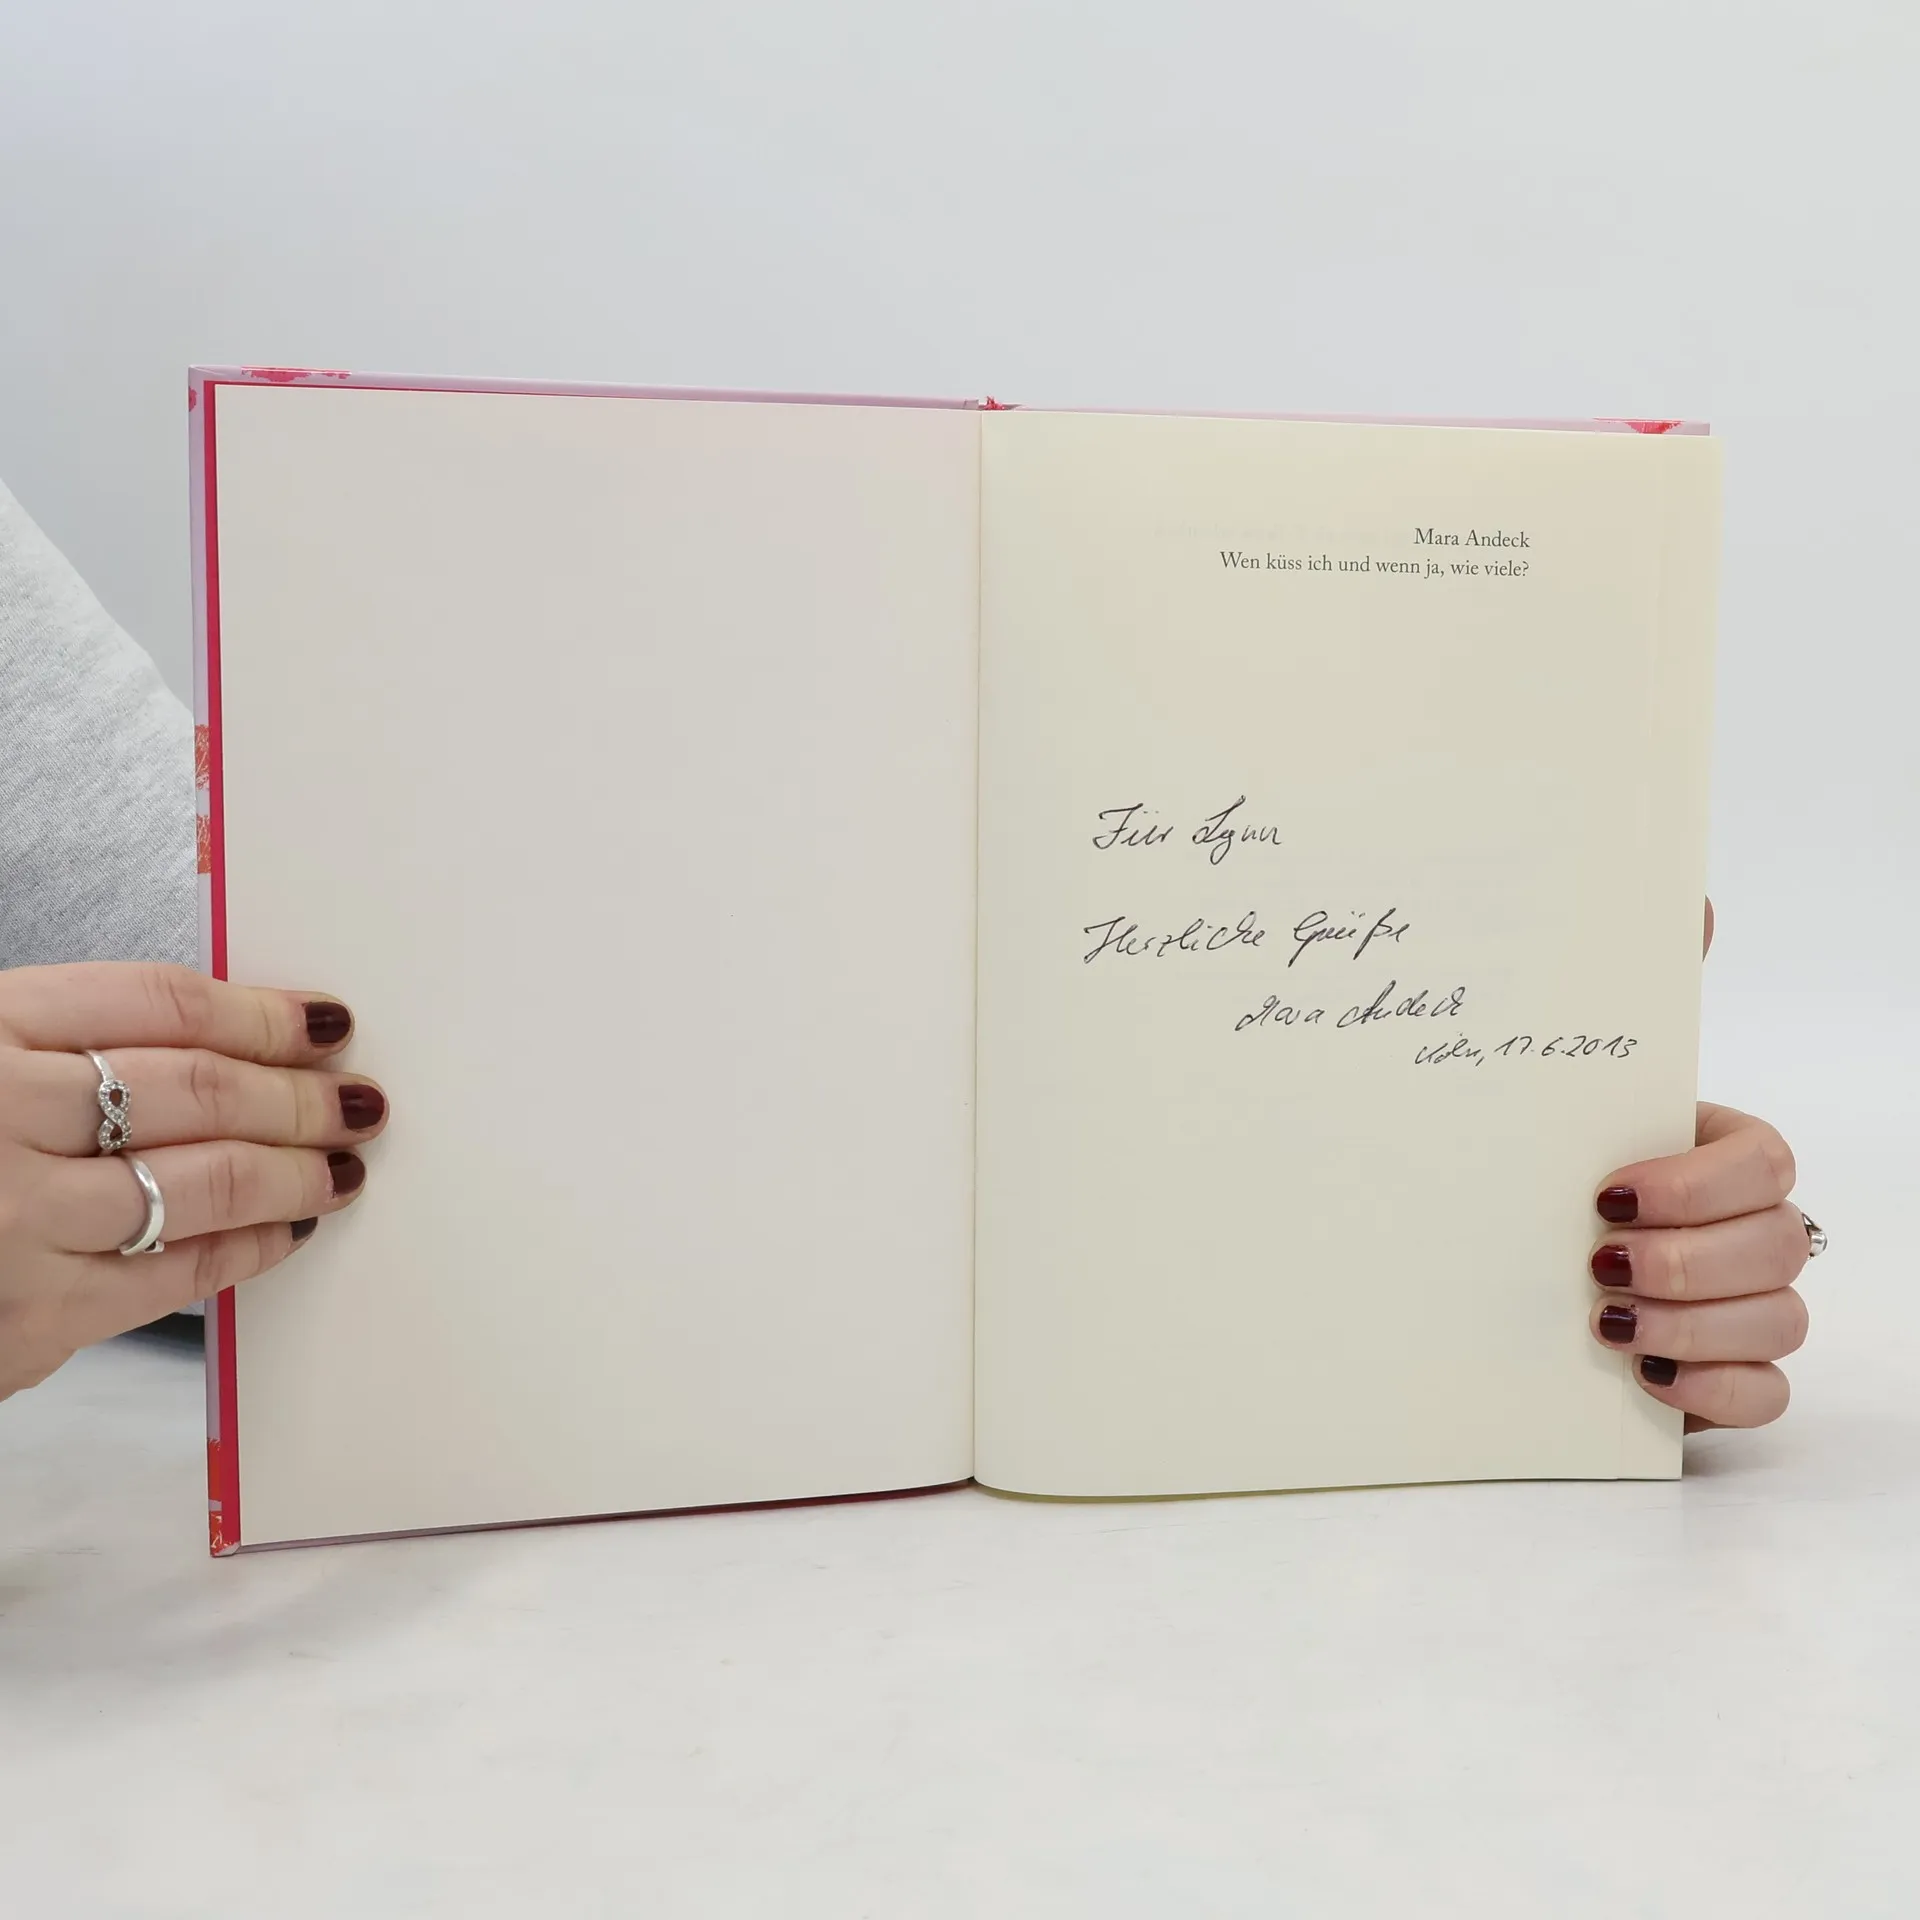 Mara Andeck
Wen küss ich und wenn ja, wie viele?
Für Lynn
Herzliche Grüße
Mara Andeck
Köln, 17.6.2013